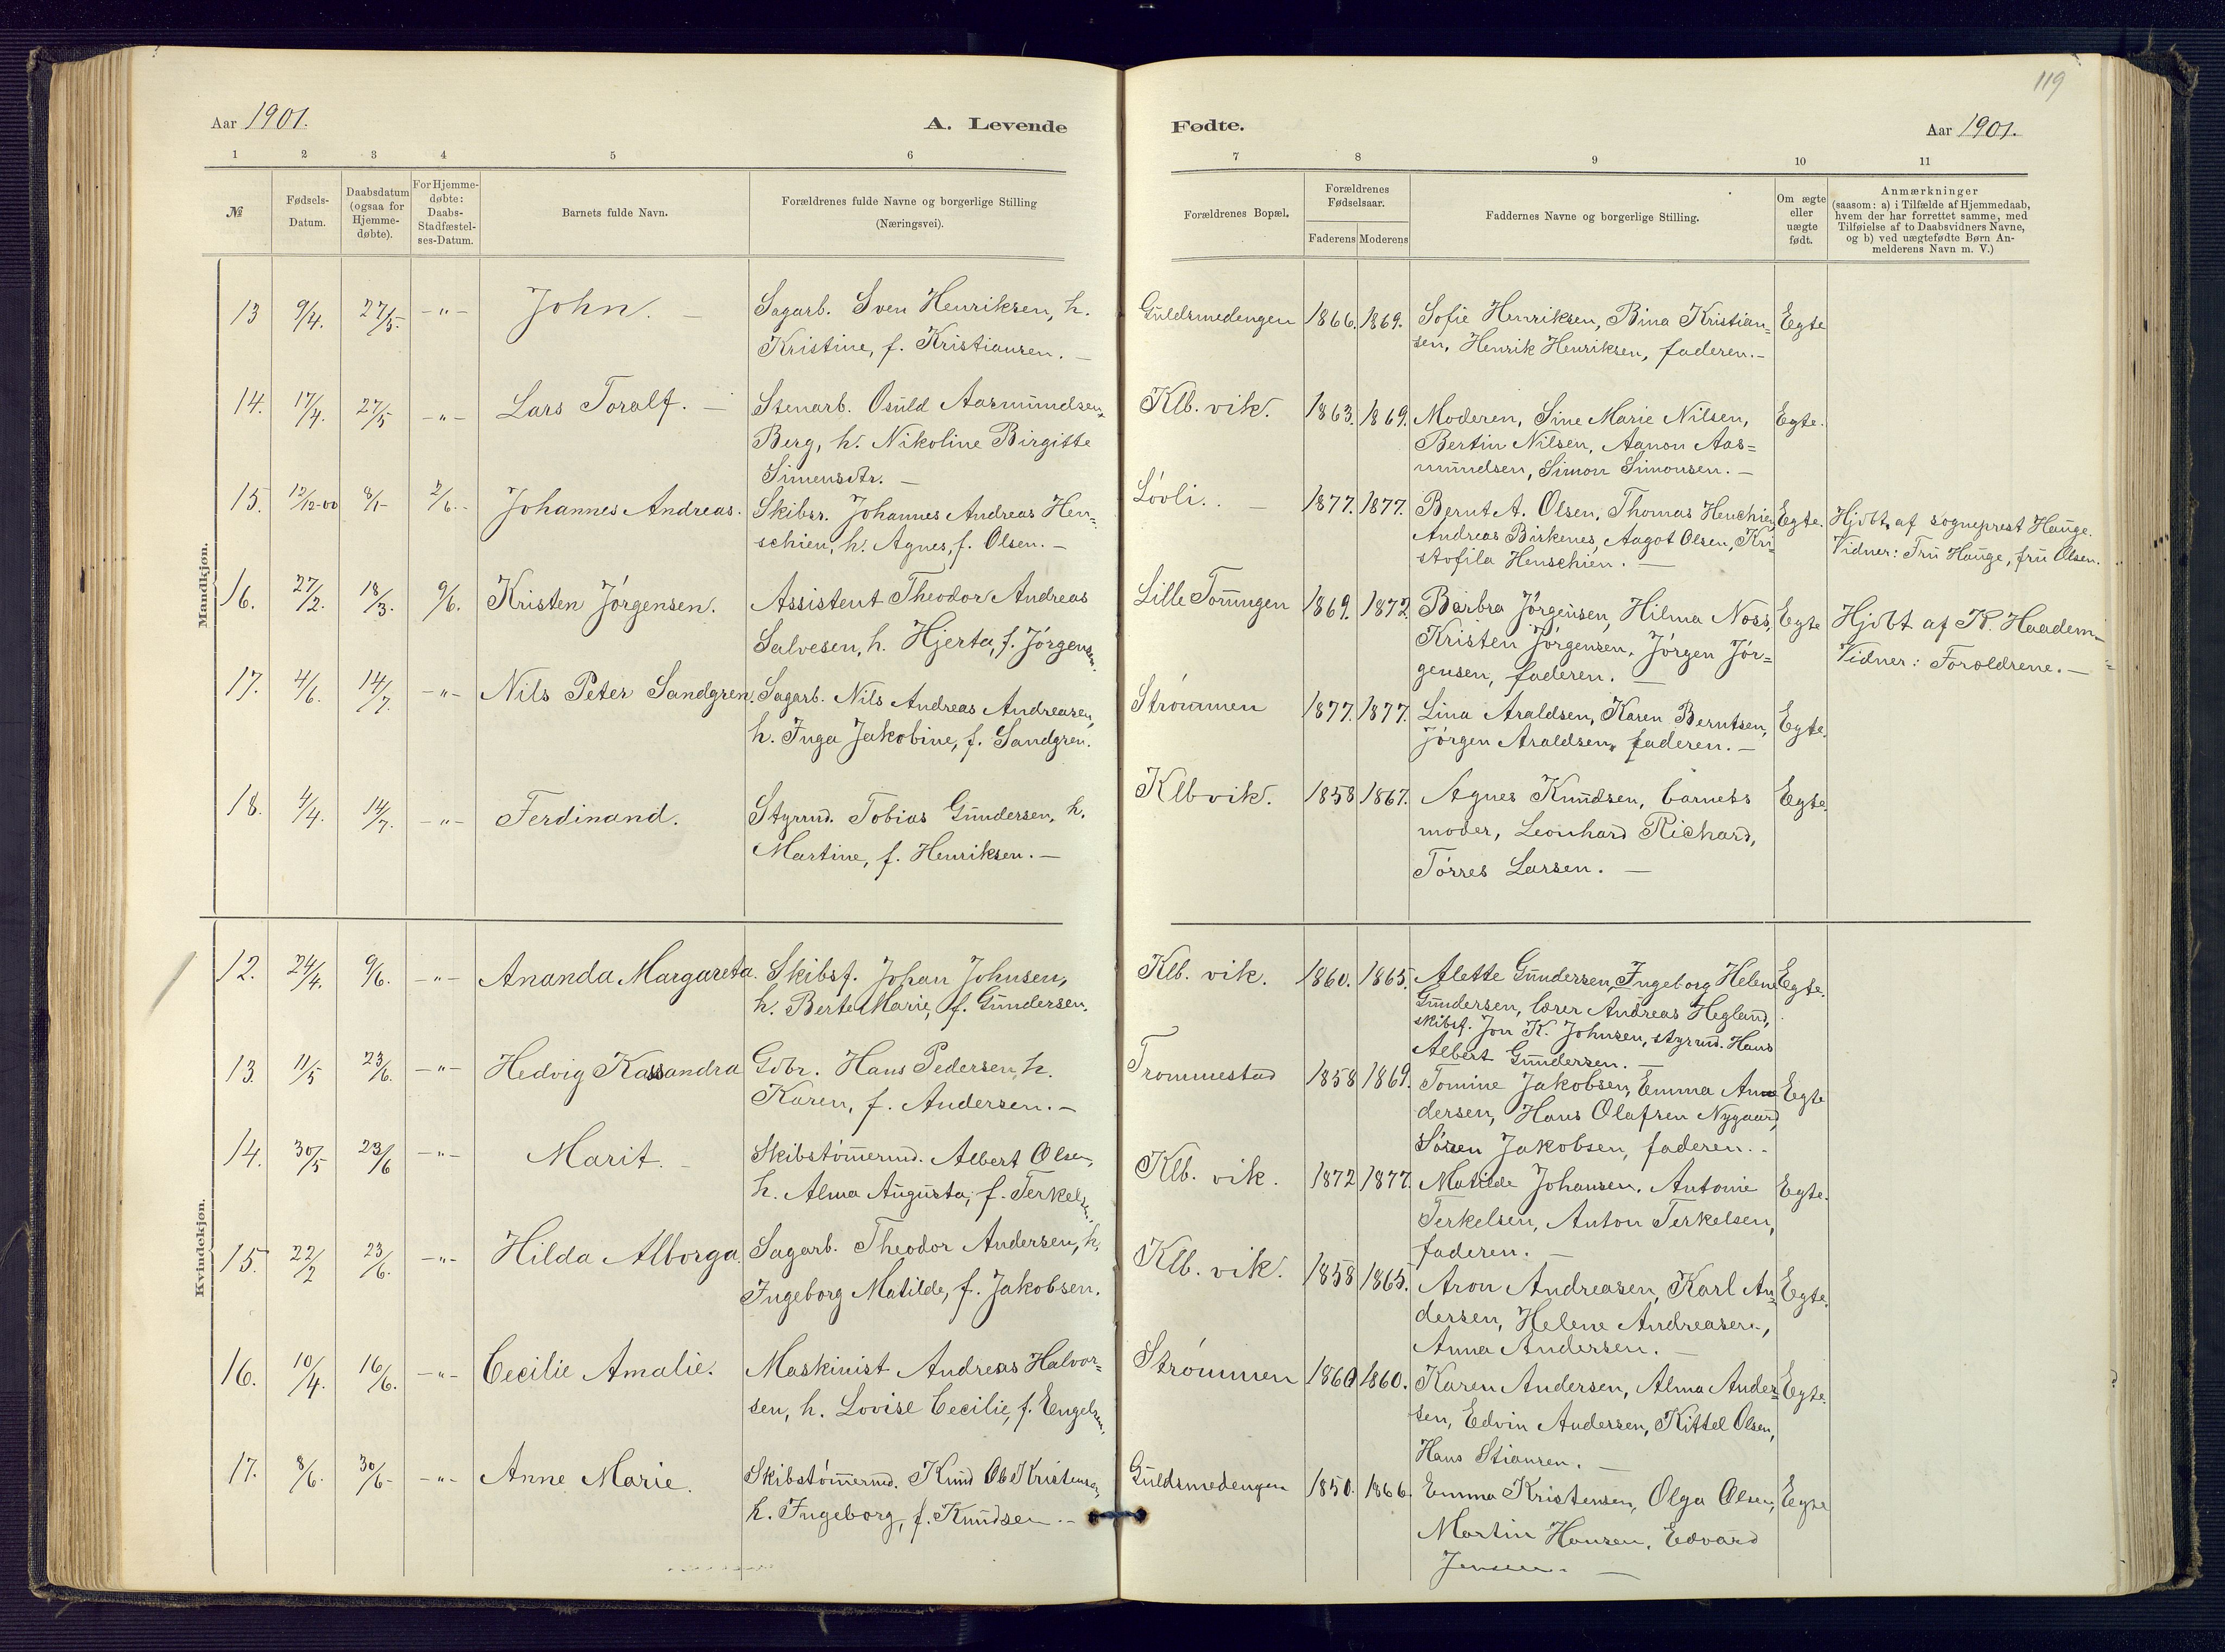 119
Aar 1901.
A. Levende Fødte.
Aar 1901.
1 2 3 4 5 6 7 8 9 10 11
№
Fødsels-
Datum.
Daabsdatum
(ogsaa for
Hjemme-
døbte).
For Hjemme-
døbte:
Daabs-
Stadfæstel-
ses-Datum.
Barnets fulde Navn.
Forældrenes fulde Navne og borgerlige Stilling
(Næringsvei).
Forældrenes Bopæl.
Forældrenes
Fødselsaar.
Faderens Moderens
Faddernes Navne og borgerlige Stilling.
Om ægte
eller
uægte
født.
Anmærkninger
(saasom: a) i Tilfælde af Hjemmedaab,
hvem der har forrettet samme, med
Tilføielse af to Daabsvidners Navne,
og b) ved uægtefødte Børn An-
melderens Navn m. V.)
Mandkjøn.
13 9/4. 27/5. -"- John. Sagarb. Sven Henriksen, h.
Kristine, f. Kristiansen. -
Guldsmedengen 1866. 1869. Sofie Henriksen, Bina Kristian-
sen, Henrik Henriksen, faderen. -
Egte
14. 17/4. 27/5 -"- Lars Toralf. - Stenarb. Osuld Aasmundsen
Berg, h. Nikoline Birgitte
Simensdtr. -
Klb. vik. 1863. 1869. Moderen, Sine Marie Nilsen,
Bertin Nilsen, Aanon Aas-
mundsen, Simon Simonsen. -
Egte.
15. 12/12-00 8/1- 2/6.- Johannes Andreas. Skibsr. Johannes Andreas Hen-
schien, h. Agnes, f. Olsen. -
Løvli. - 1877. 1877. Bernt A. Olsen, Thomas Henchien,
Andreas Birkenes, Aagot Olsen, Kri-
stofila Henschien. -
Egte. Hjdbt. af sogneprest Hauge.
Vidner: Fru Hauge, fru Olsen.
16. 27/2. 18/3. 9/6. Kristen Jørgensen. Assistent Theodor Andreas
Salvesen, h. Hjerta, f. Jørgensen.
Lille Torungen 1869. 1872 Barbra Jørgensen, Hilma Noss,
Kristen Jørgensen, Jørgen Jør-
gensen, faderen. -
Egte Hjdbt. af K. Haadem-
Vidner: Foroldrene. -
17. 4/6. 14/7. -"- Nils Peter Sandgren. Sagarb. Nils Andreas Andreasen,
h. Inga Jakobine, f. Sandgren.
Strømmen 1877. 1877. Lina Araldsen, Karen Berntsen,
Jørgen Araldsen, faderen. -
Egte.
18. 4/4. 14/7. -"- Ferdinand. Styrmd. Tobias Gundersen, h.
Martine, f. Henriksen. -
Klb vik. 1858 1867. Agnes Knudsen, barnets
moder, Leonhard Richard,
Tørres Larsen. -
Egte.
Kvindekjøn.
12. 24/4. 9/6. -"- Ananda Margareta. Skibsf. Johan Johnsen,
h. Berte Marie, f. Gundersen.
Klb. vik. 1860. 1865. Alette Gundersen, Ingeborg Helene
Gundersen, lærer Andreas Hegland,
skibsf. Jon K. Johnsen, styrmd. Hans
Albert Gundersen. -
Egte.
13. 11/5 23/6. -"- Hedvig Kassandra Gdbr. Hans Pedersen, h.
Karen, f. Andersen. -
Trommestad 1858 1869. Tomine Jakobsen, Emma An-
dersen, Hans Olafsen Nygaard,
Søren Jakobsen, faderen. -
Egte
14. 30/5 23/6 -"- Marit. - Skibstømermd. Albert Olsen,
h. Alma Augusta, f. Terkelsen,
Klb. vik. 1872 1877. Matilde Johansen, Antonie
Terkelsen, Anton Terkelsen,
faderen. -
Egte.
15. 22/2 23/6. -"- Hilda Alborga. Sagarb. Theodor Andersen, h.
Ingeborg Matilde, f. Jakobsen.
Klb. vik. 1858 1865. Aron Andreasen, Karl An-
dersen, Helene Andreasen,
Anna Andersen. -
Egte.
16. 10/4. 16/6. -"- Cecilie Amalie. Maskinist Andreas Halvor-
sen, h. Lovise Cecilie, f. Engelsen.
Strømmen 1860 1860. Karen Andersen, Alma Ander-
sen, Edvin Andersen, Kittel Olsen,
Hans Stiansen. -
Egte.
17. 8/6. 30/6- -"- Anne Marie. Skibstømermd. Knud Ols Kristensen,
h. Ingeborg, f. Knudsen -
Guldsmedengen 1850. 1866. Emma Kristensen, Olga Olsen,
Martin Hansen, Edvard
Jensen. -
Egte